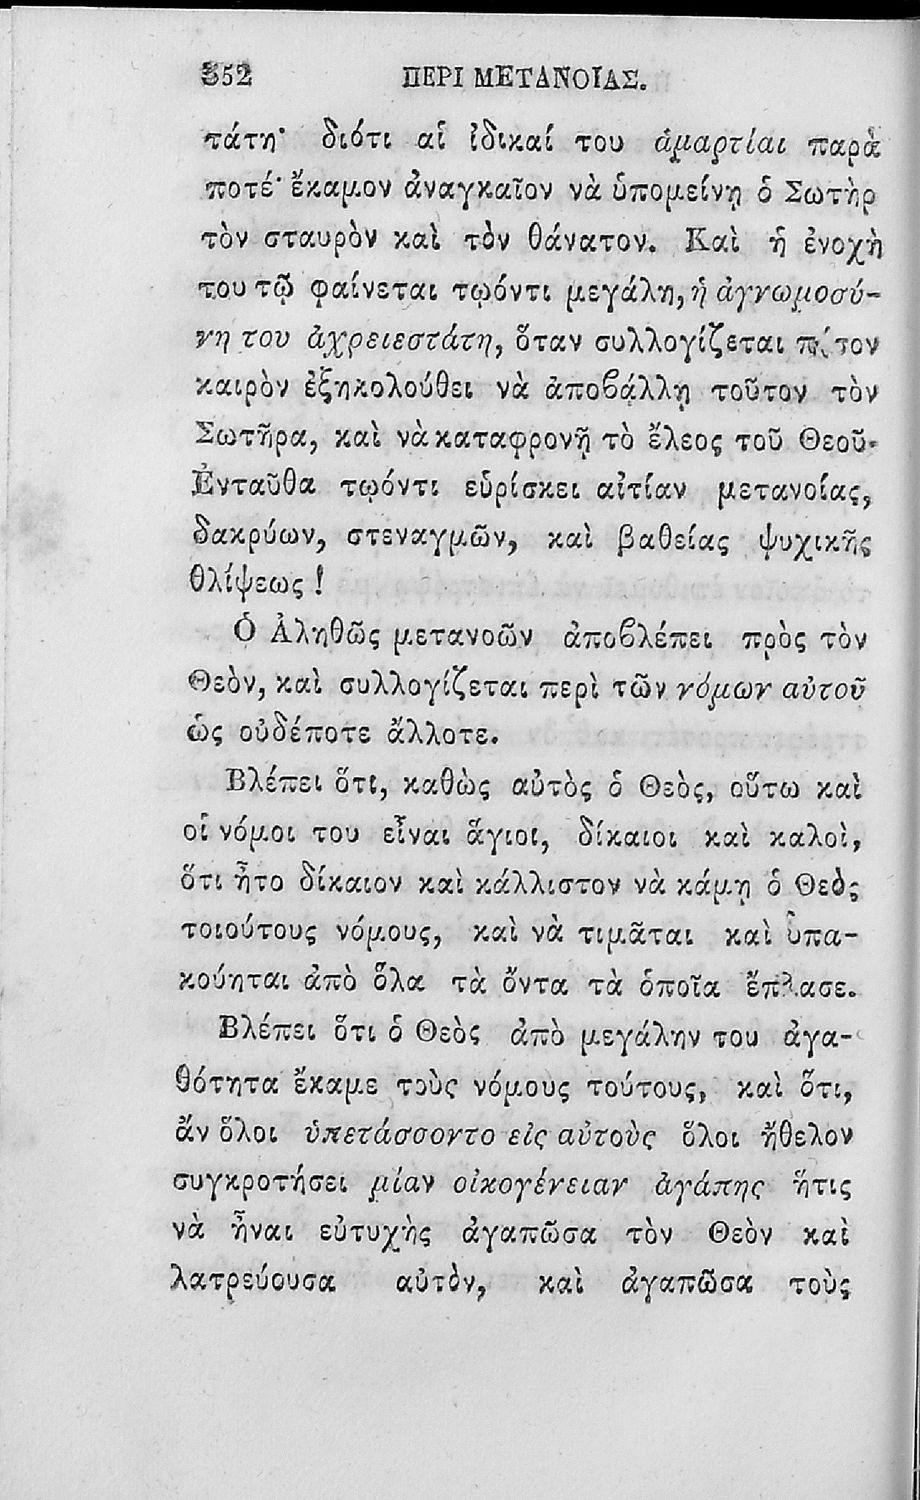 352 ΠΕΡΙ ΜΕΤΑΝΟΙΑΣ.
τάτη· διότι αἱ ἰδικαί του ἁμαρτίαι παρὰ
ποτέ· ἔκαμον ἀναγκαῖον νὰ ὑπομείνῃ ὁ Σωτὴρ
τὸν σταυρὸν καὶ τὸν θάνατον. Καὶ ἡ ἐνοχὴ
του τῷ φαίνεται τῳόντι μεγάλη, ἡ ἀγνωμοσύ-
νη του ἀχρειεστάτη, ὅταν συλλογίζεται πό τον
καιρὸν ἐξηκολούθει νὰ ἀποβάλλῃ τοῦτον τὸν
Σωτῆρα, καὶ νὰ καταφρονῇ τὸ ἔλεος τοῦ Θεοῦ.
Ἐνταῦθα τῳόντι εὑρίσκει αἰτίαν μετανοίας,
δακρύων, στεναγμῶν, καὶ βαθείας ψυχικῆς
θλίψεως!
Ὁ Ἀληθῶς μετανοῶν ἀποβλέπει πρὸς τὸν
Θεὸν, καὶ συλλογίζεται περὶ τῶν νόμων αὐτοῦ
ὡς οὐδέποτε ἄλλοτε.
Βλέπει ὅτι, καθὼς αὐτὸς ὁ Θεὸς, οὕτω καὶ
οἱ νόμοι του εἶναι ἅγιοι, δίκαιοι καὶ καλοὶ,
ὅτι ἦτο δίκαιον καὶ κάλλιστον νὰ κάμῃ ὁ Θεὸς
τοιούτους νόμους, καὶ νὰ τιμᾶται καὶ ὑπα-
κούηται ἀπὸ ὅλα τὰ ὄντα τὰ ὁποῖα ἔπλασε.
Βλέπει ὅτι ὁ Θεὸς ἀπὸ μεγάλην του ἀγα-
θότητα ἔκαμε τοὺς νόμους τούτους, καὶ ὅτι,
ἄν ὅλοι ὑπετάσσοντο εἰς αὐτοὺς ὅλοι ἤθελον
συγκροτήσει μίαν οἰκογένειαν ἀγάπης ἥτις
νὰ ἦναι εὐτυχὴς ἀγαπῶσα τὸν Θεὸν καὶ
λατρεύουσα αὐτὸν, καὶ ἀγαπῶσα τοὺς